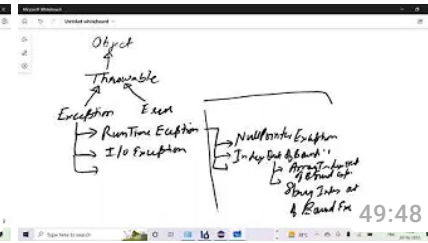 Microsoft Whiteboard
Untitled whiteboard
Object
Throwable
Exception Error
RunTime Exception
I/O Exception
NullPointer Exception
Index Out of Bound
Array Index out
of Bound
String Index out
of Bound Exe
49:48
Type here to search